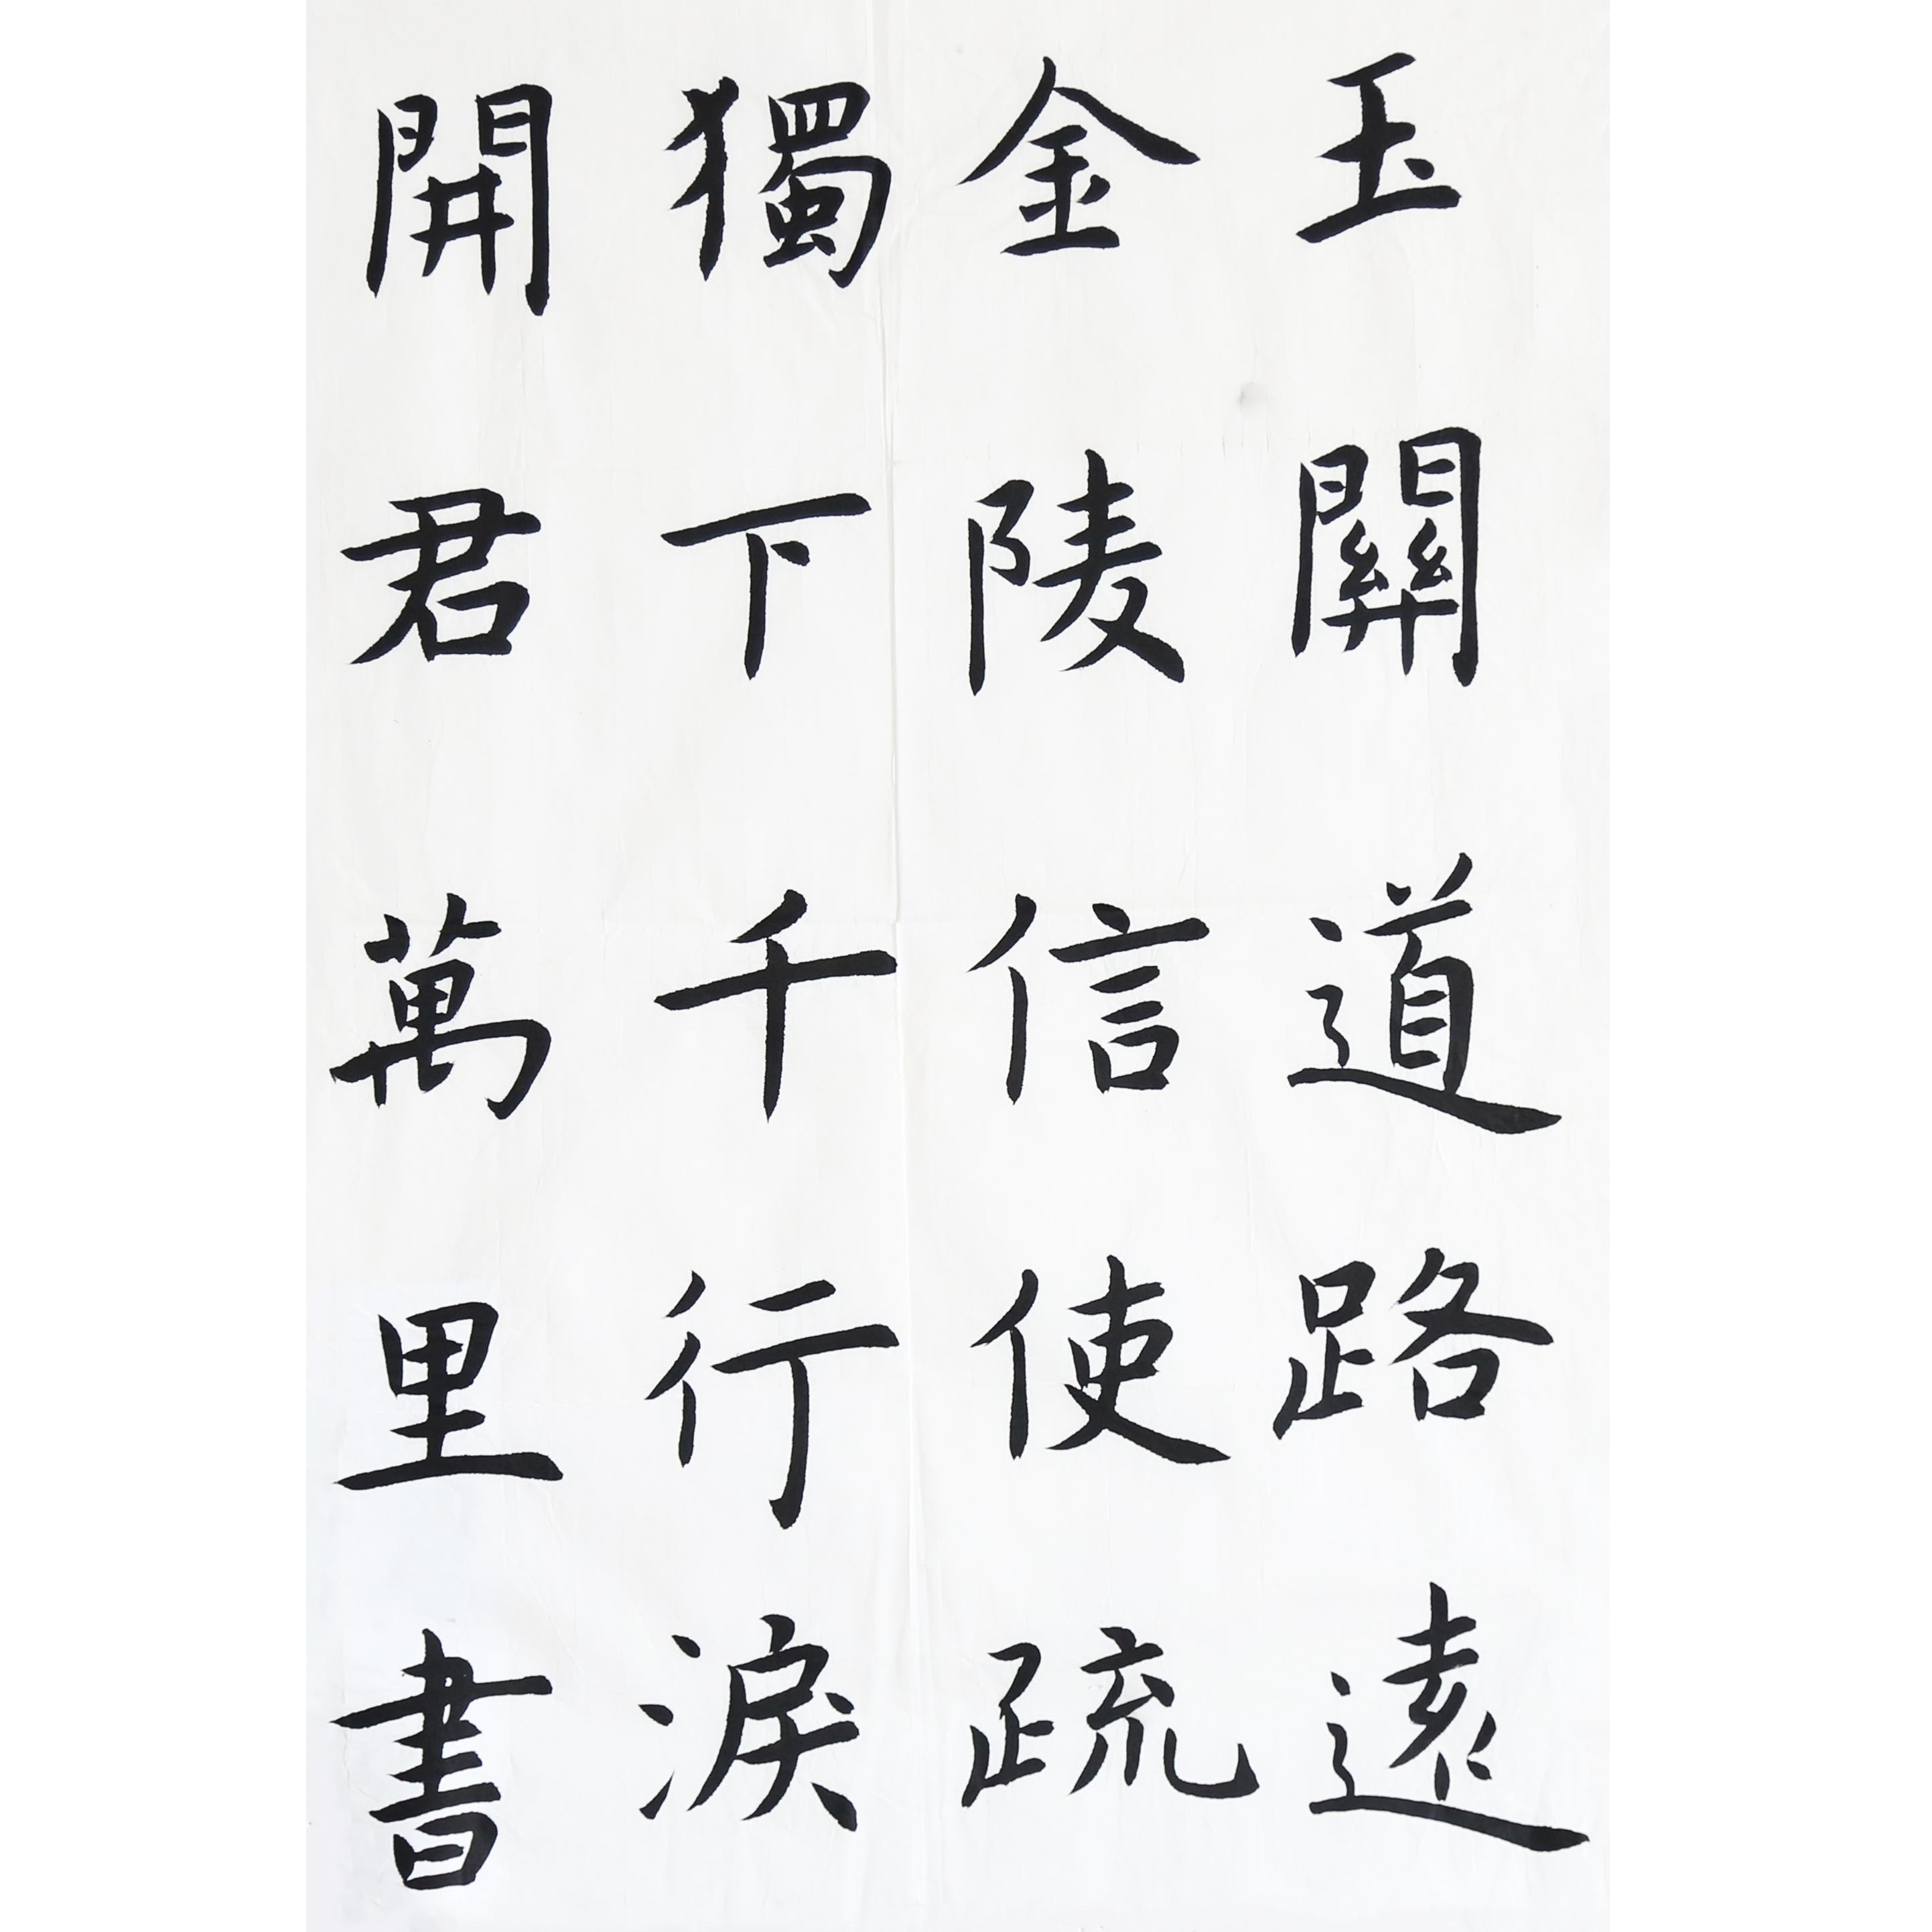 玉關道路遠
金陵信使疏
獨下千行淚
開君萬里書